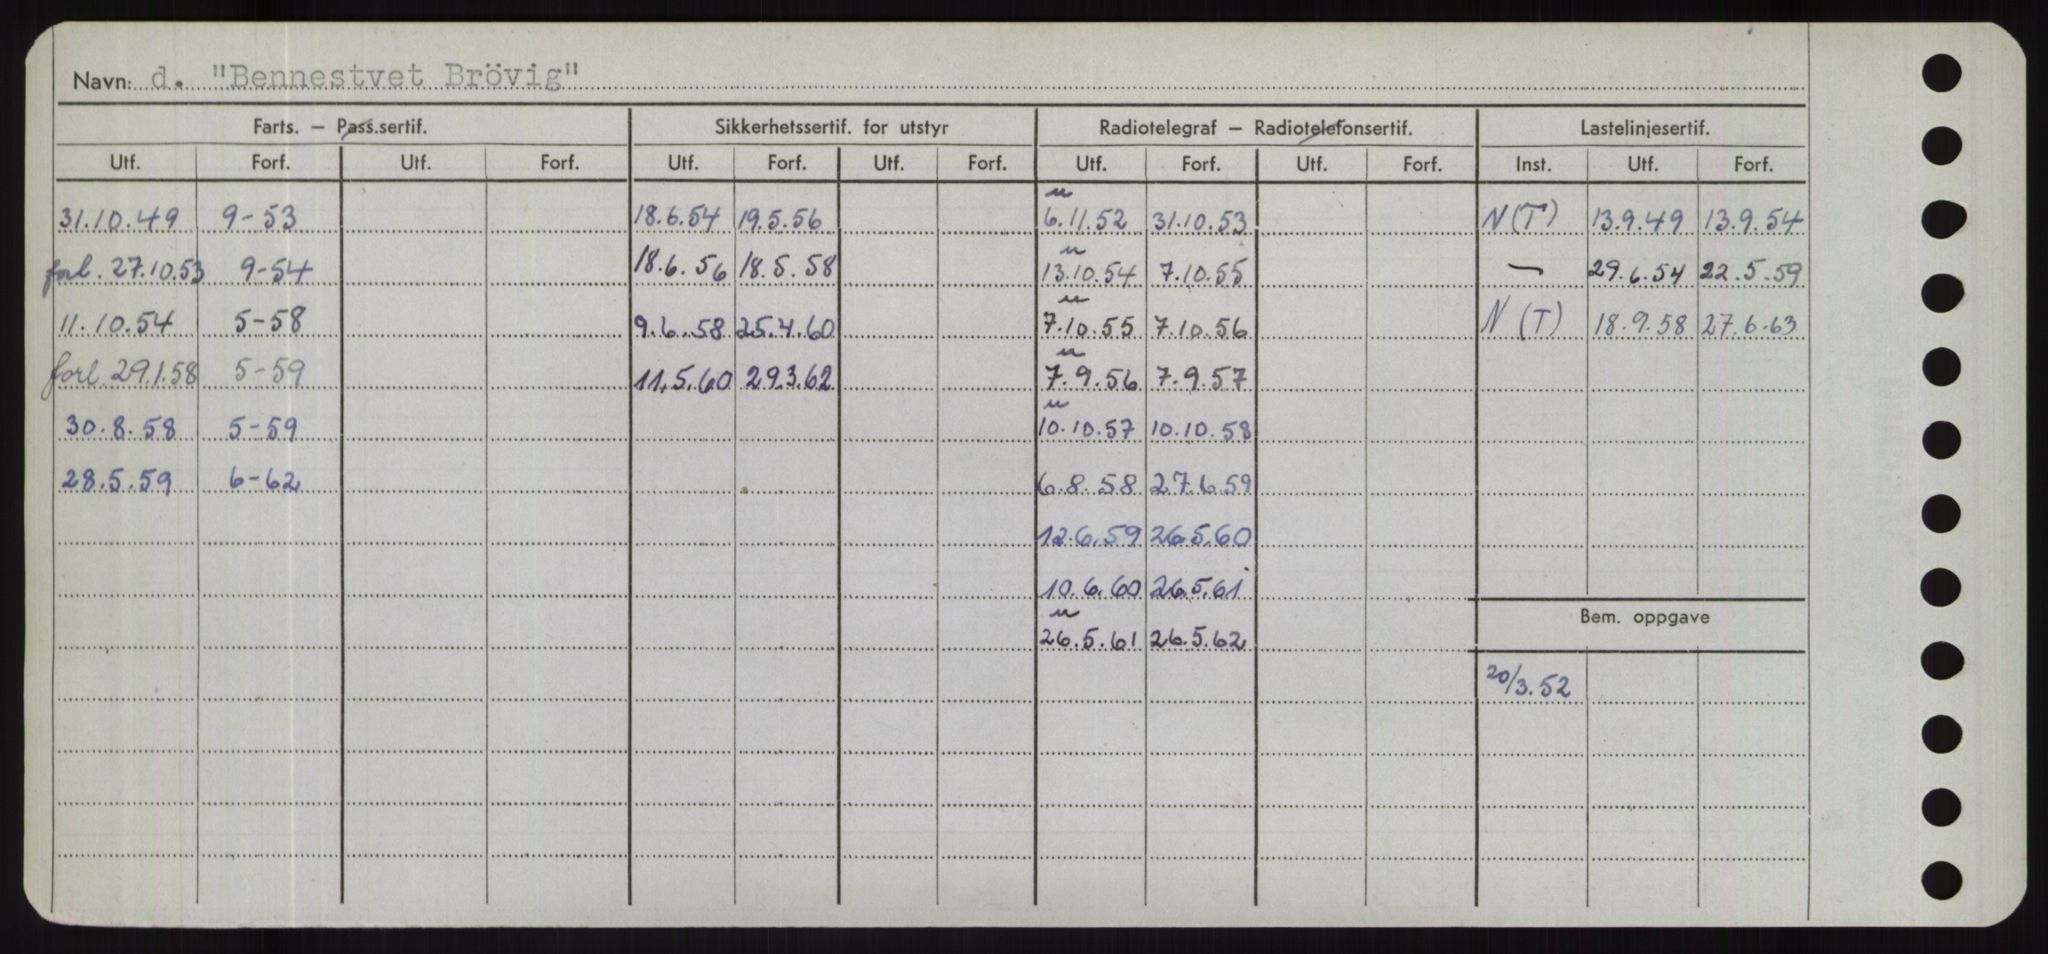 Navn: d. "Bennestvet Brövig"
Farts. — Pass.sertif. Sikkerhetssertif. for utstyr Radiotelegraf — Radiotelefonsertif. Lastelinjesertif.
Utf. Forf. Utf. Forf. Utf. Forf. Utf. Forf. Utf. Forf. Utf. Forf. Inst. Utf. Forf.
u
31.10.49 9-53 18.6.54 19.5.56 6.11.52 31.10.53 N(T) 13.9.49 13.9.54
u
forl. 27.10.53 9-54 18.6.56 18.5.58 13.10.54 7.10.55 — 29.6.54 22.5.59
u
11.10.54 5-58 9.6.58 25.4.60 7.10.55 7.10.56 N(T) 18.9.58 27.6.63
u
forl. 29.1.58 5-59 11.5.60 29.3.62 7.9.56 7.9.57
u
30.8.58 5-59 10.10.57 10.10.58
28.5.59 6-62 6.8.58 27.6.59
12.6.59 26.5.60
10.6.60 26.5.61
Bem. oppgave
u
26.5.61 26.5.62
20/3.52